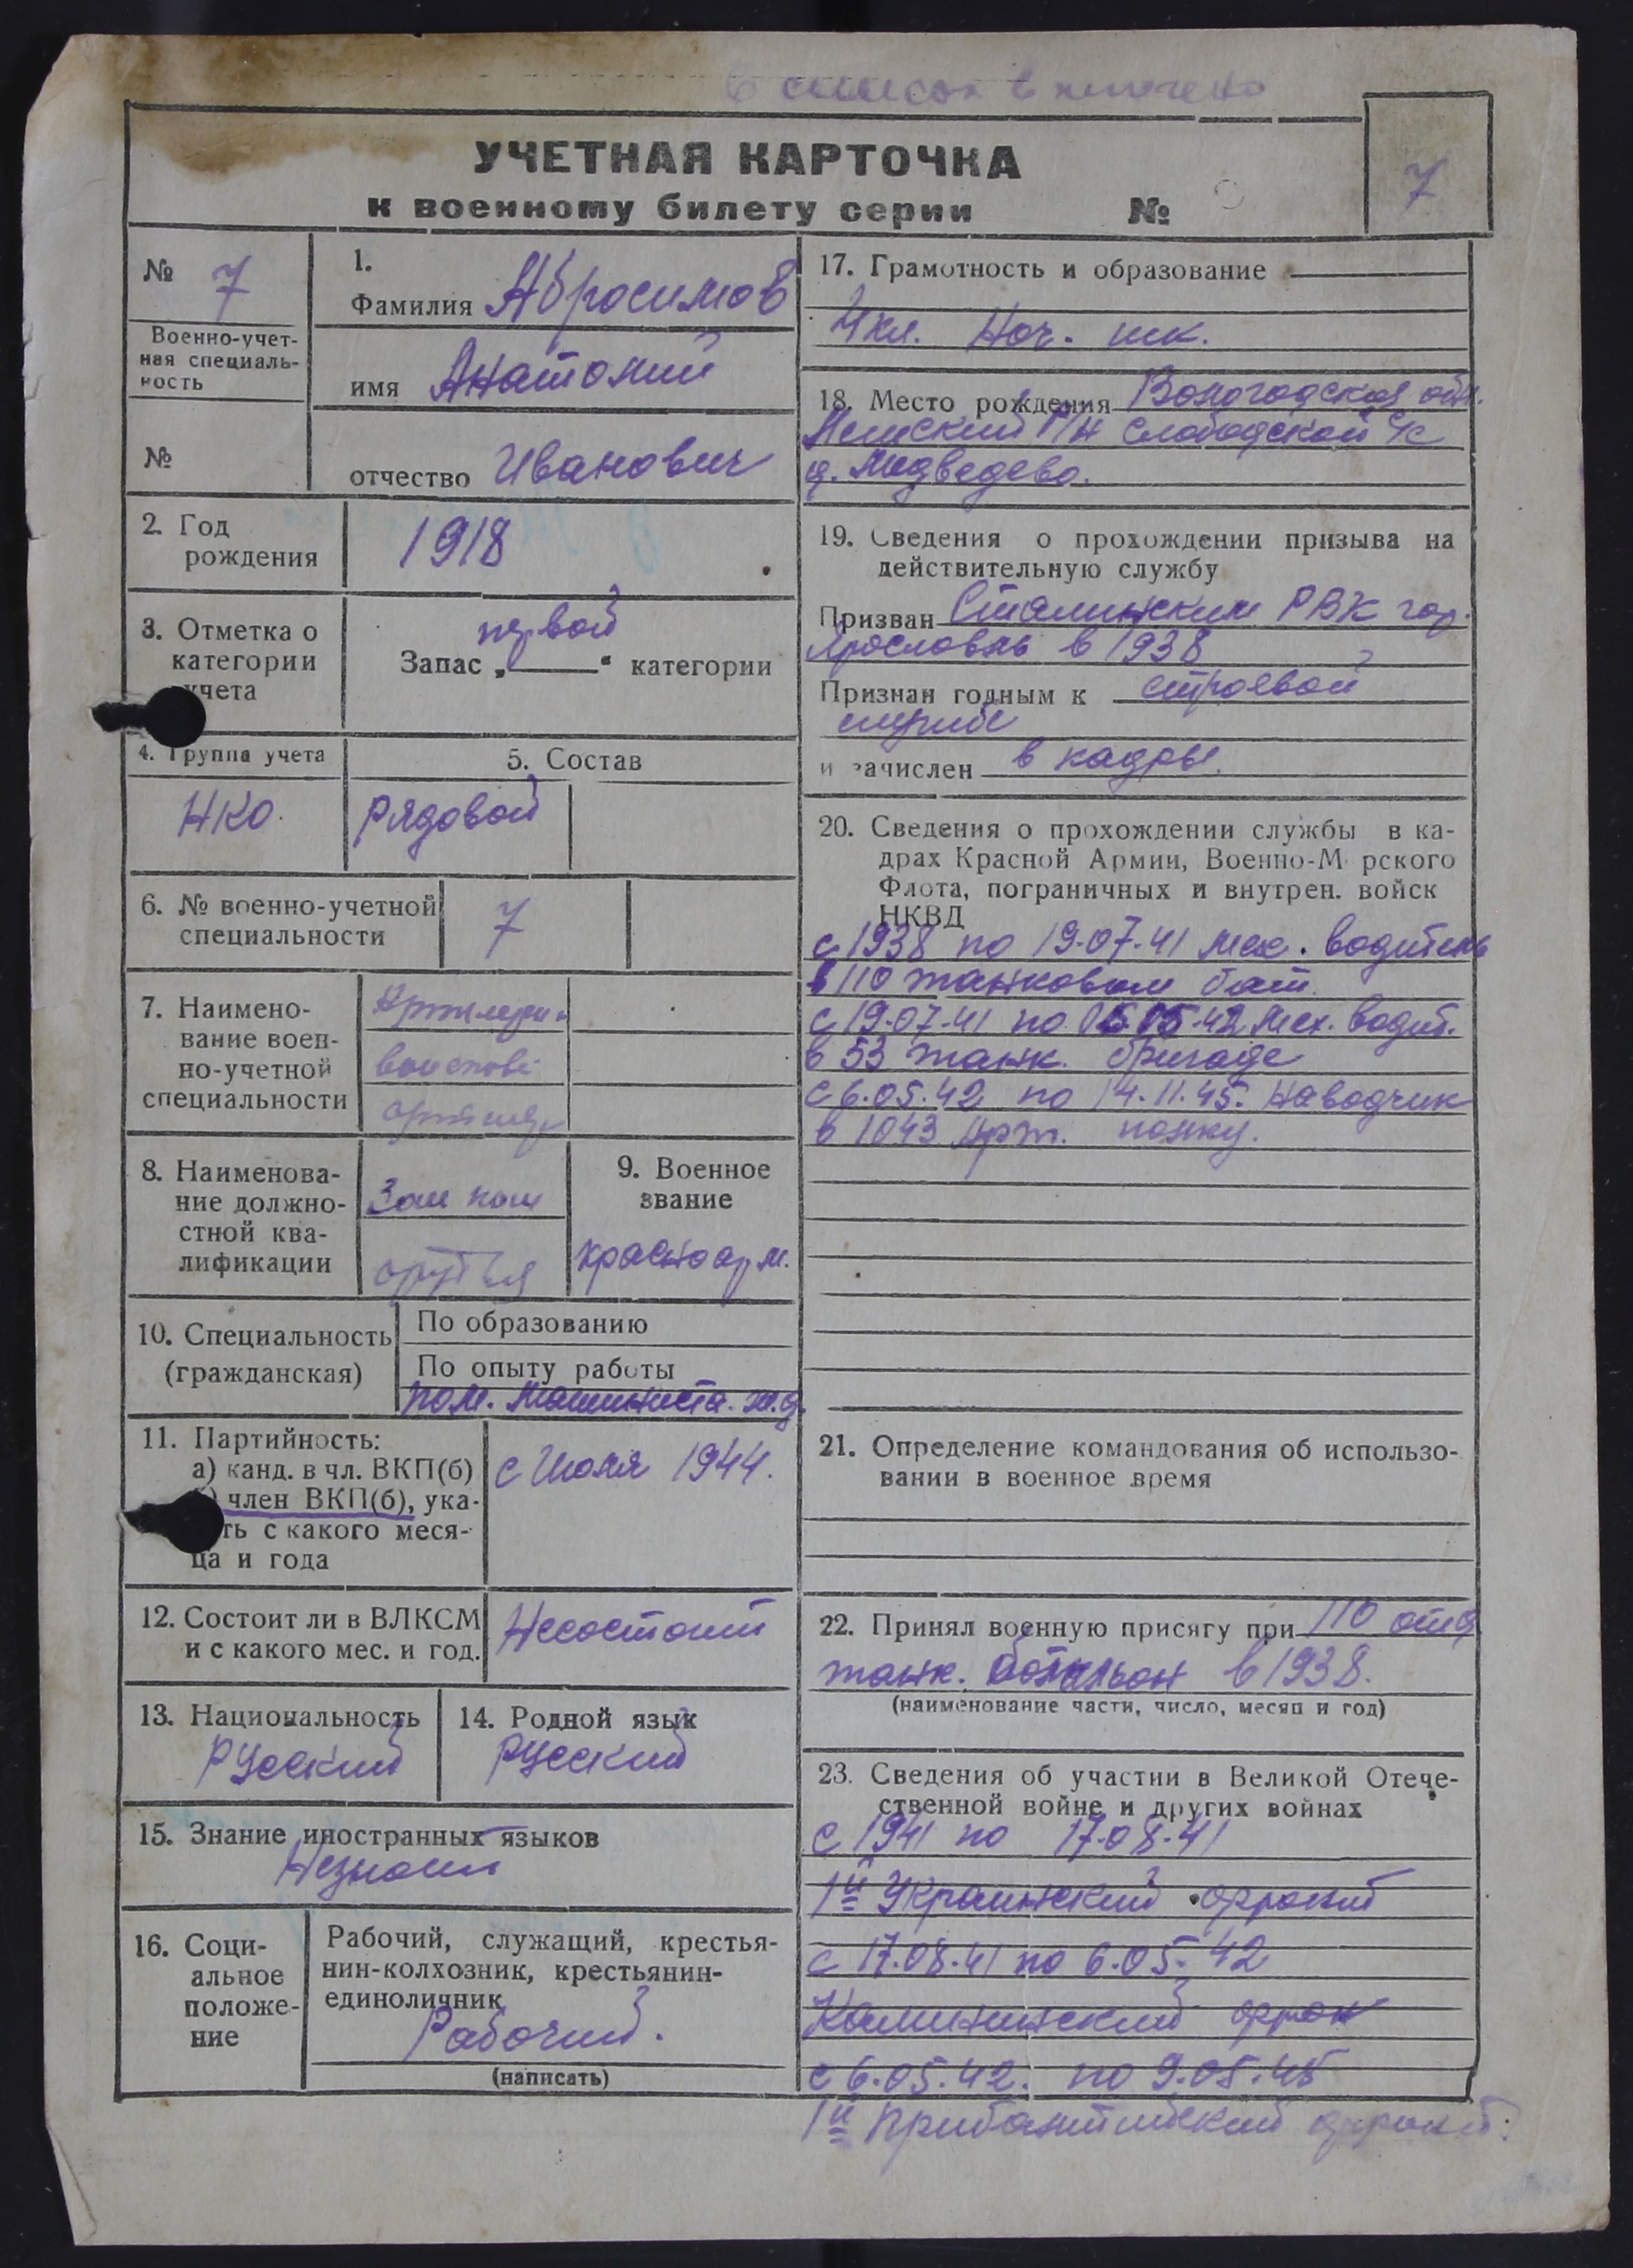 В список включено
УЧЕТНАЯ КАРТОЧКА
к военному билету серии №
7
№ 7
Военно-учет-
ная специаль-
ность
№
1.
Фамилия Абросимов
имя Анатолий
отчество Иванович
2. Год
рождения
1918
3. Отметка о
категории
учета
первой
Запас „ “ категории
4. Группа учета
НКО.
5. Состав
Рядовой
6. № военно-учетной
специальности
7
7. Наимено-
вание воен-
но-учетной
специальности
8. Наименова-
ние должно-
стной ква-
лификации
Зам ком
орудья
9. Военное
звание
красноарм.
10. Специальность
(гражданская)
По образованию
По опыту работы
пом. Машиниста. ж.д.
11. Партийность:
а) канд. в чл. ВКП(б)
член ВКП(б), ука-
ть с какого меся-
ца и года
с Июля 1944.
12. Состоит ли в ВЛКСМ
и с какого мес. и год.
Несостоит
13. Национальность
Русский
14. Родной язык
Русский
15. Знание иностранных языков
16. Соци-
альное
положе-
ние
Рабочий, служащий, крестья-
нин-колхозник, крестьянин-
единоличник
Рабочий.
(написать)
17. Грамотность и образование
4 кл. Нач. шк.
18. Место рождения Вологодская обл.
р/н Слободской с/с
д. Медведево.
19. Сведения о прохождении призыва на
действительную службу
Призван Сталинским РВК гор.
Ярославль в 1938
Признан годным к строевой
службе
и зачислен в кадры.
20. Сведения о прохождении службы в ка-
драх Красной Армии, Военно-М рского
Флота, пограничных и внутрен. войск
НКВД
с 1938 по 19.07.41 мех. водитель
в 110 танковом бат.
с 19.07.41 по 05.05.42 Мех. водит.
в 53 танк. бригаде
с 6.05.42 по 14.11.45. Наводчик
в 1043 Арт. полку.
21. Определение командования об использо-
вании в военное время
22. Принял военную присягу при 110 отд
танк. батальон в 1938.
(наименование части, число, месяц и год)
23. Сведения об участии в Великой Отече-
ственной войне и других войнах
с 1941 по 17.08.41
1й Украинский фронт
с 17.08.41 по 6.05.42
Калининский фрон
с 6.05.42. по 9.05.45
1й Прибалтийский фронт.